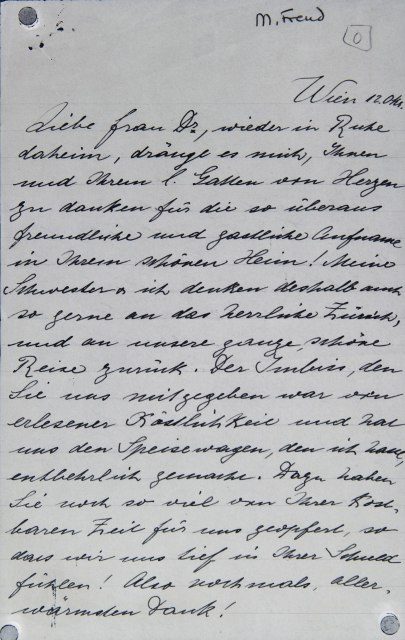 M. Freud
0
Wien 12. Okt.
Liebe Frau Dr, wieder in Ruhe
daheim, drängt es mich, Ihnen
und Ihrem l. Gatten von Herzen
zu danken für die so überaus
freundliche und gastliche Aufname
in Ihrem schönen Heim! Meine
Schwester u ich denken deshalb auch
so gerne an das herrliche Zürich,
und an unsere ganze, schöne
Reise zurück. Der Imbiss, den
Sie uns mitgegeben war von
erlesener Köstlichkeit und hat
uns den Speisewagen, den ich hasse,
entbehrlich gemacht. Dazu haben
Sie noch so viel von Ihrer kost-
baren Zeit für uns geopfert, so
dass wir uns tief in Ihrer Schuld
fühlen! Also nochmals, aller-
wärmsten Dank!